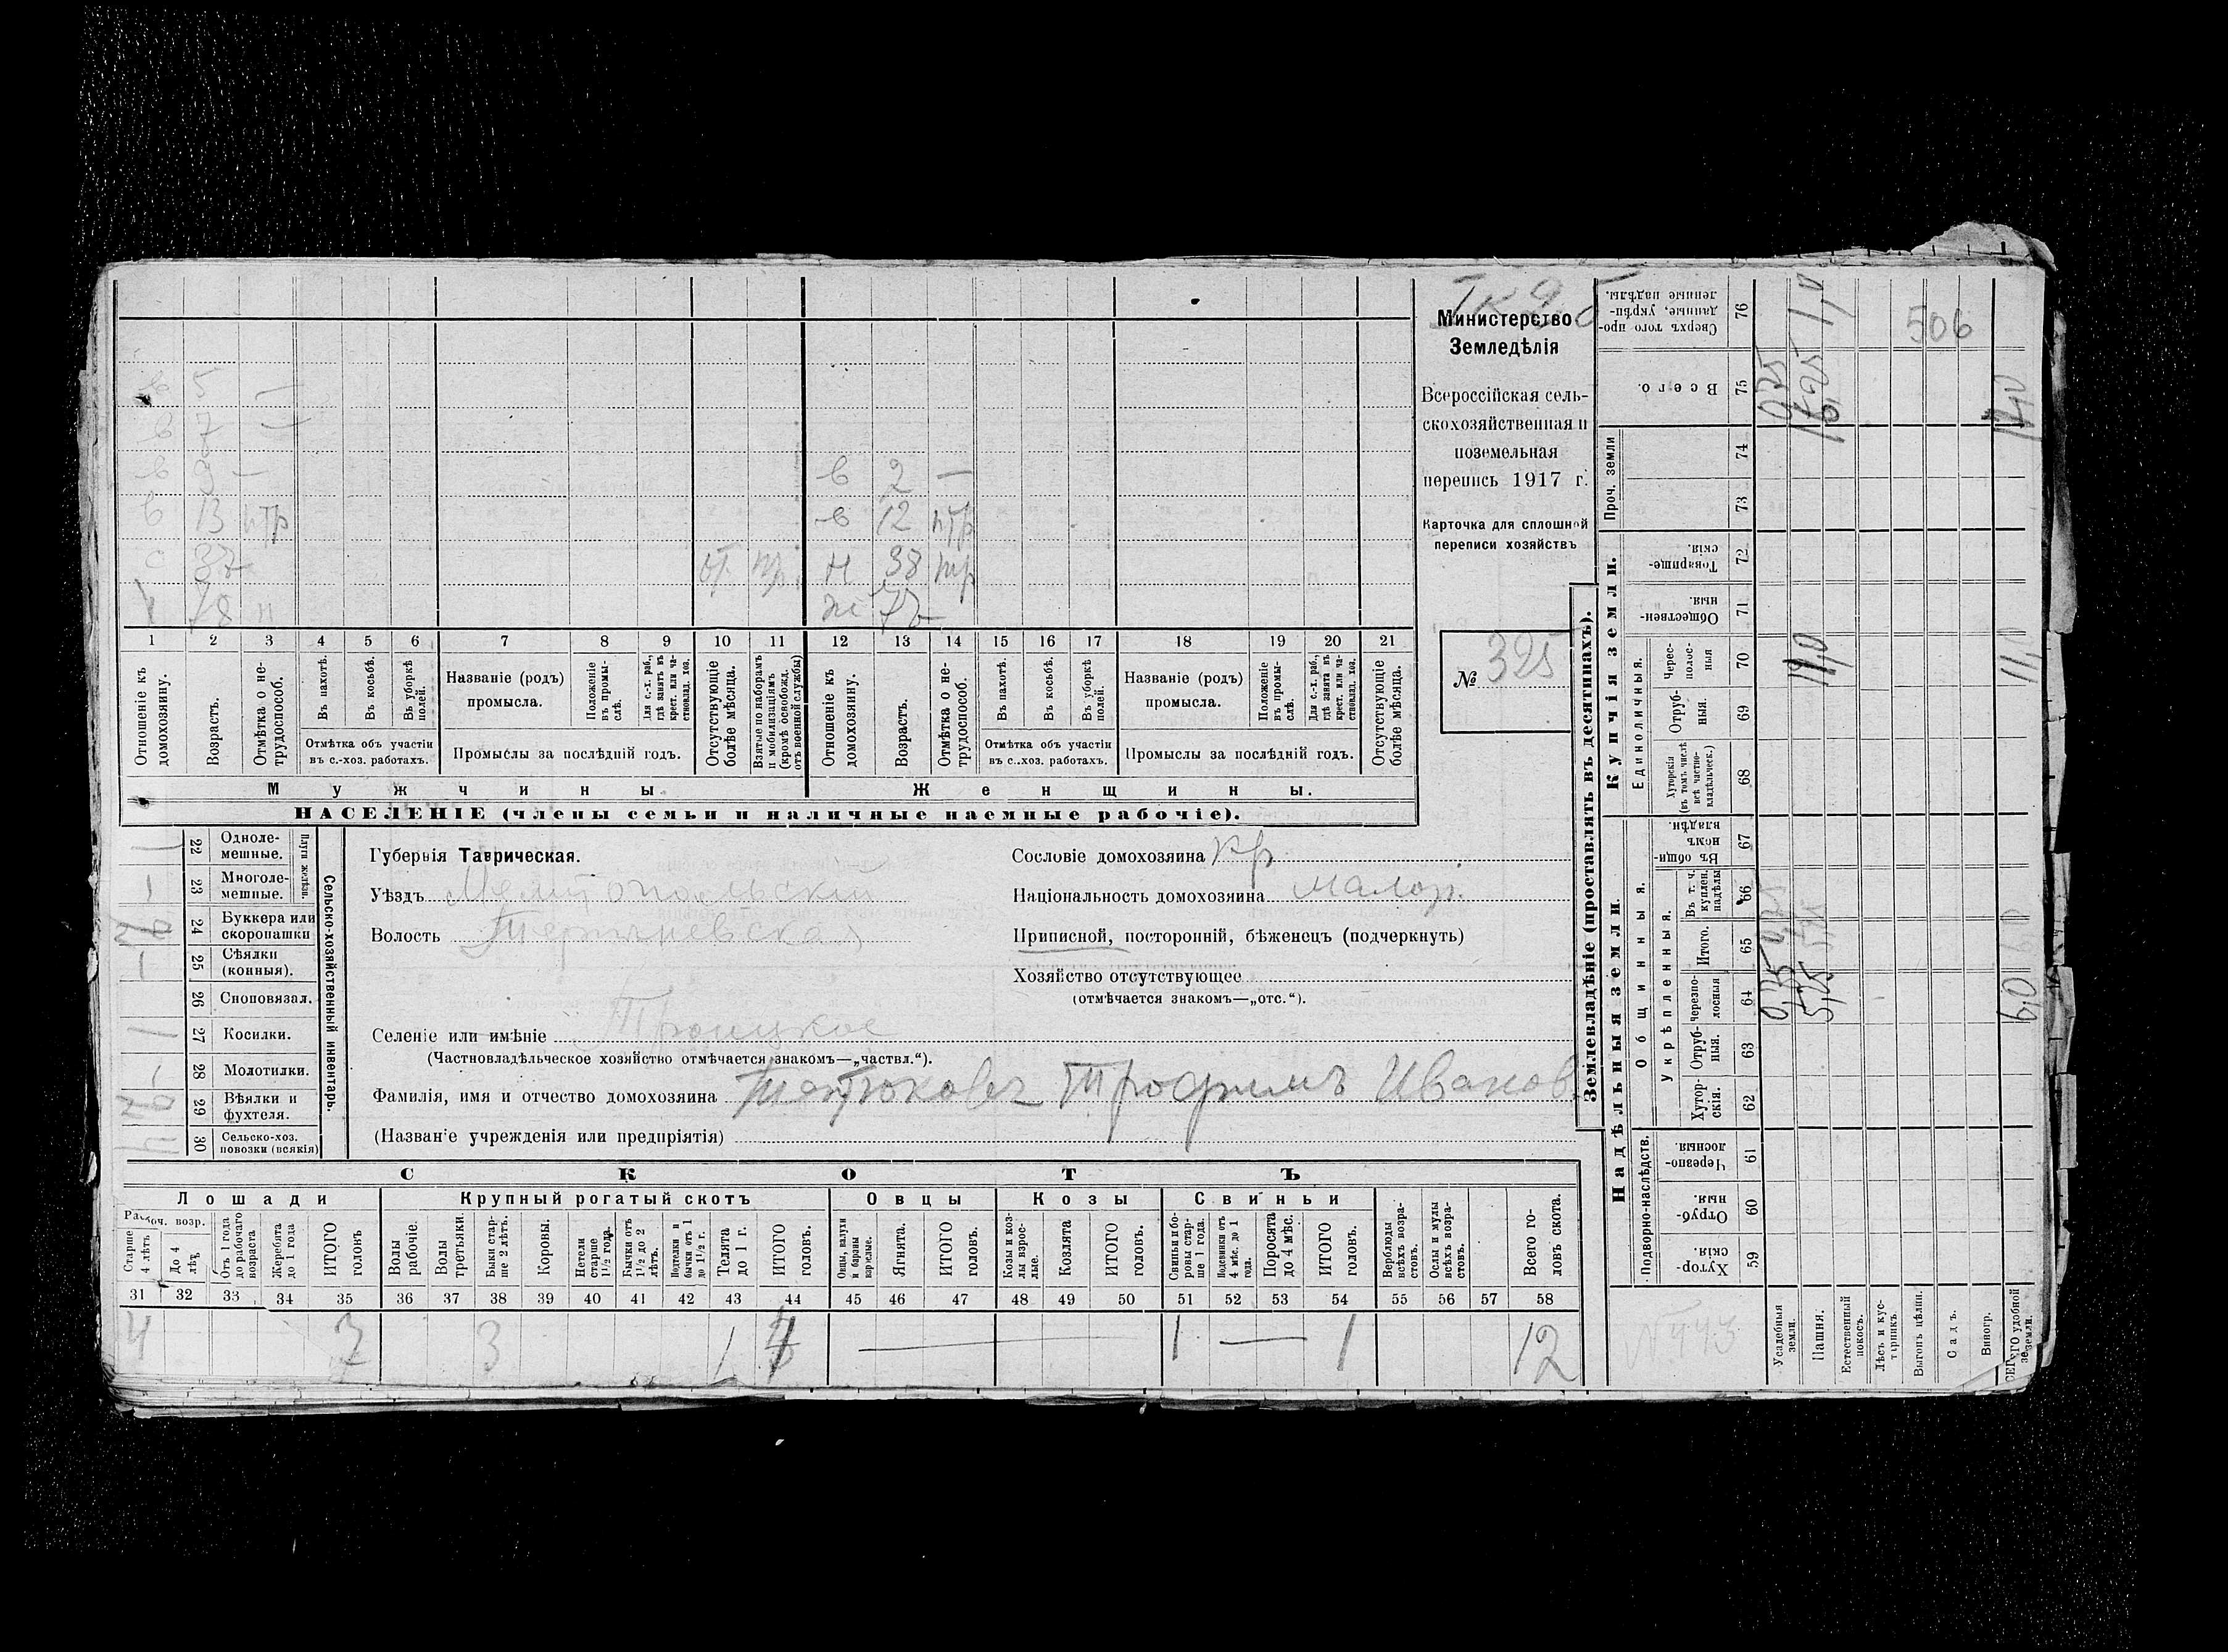 506
Министерство
Земледѣлія
Всероссійская сель-
скохозяйственная и
поземельная
перепись 1917 г.
Карточка для сплошной
переписи хозяйствъ
№ 325
в 5 —
в 7 —
в 2 —
в 13 нтр
в 12 нтр
37 от. пр. н 38 нтр
1 2 3 4 5 6 7 8 9 10 11 12 13 14 15 16 17 18 19 20 21
Отношеніе къ домохозяину.
Возрастъ.
Отмѣтка о не-трудоспособ.
Въ пахотѣ.
Въ косьбѣ.
Въ уборкѣ полей.
Отмѣтка объ участіи въ с.-хоз. работахъ.
Названіе (родъ) промысла.
Положеніе въ промы-слѣ.
Для с.-х. раб., гдѣ занятъ въ крест. или ча-стновлад. хоз.
Промыслы за послѣдній годъ.
Отсутствующіе болѣе мѣсяца.
Взятые по наборамъ и мобилизаціямъ (кромѣ освобожд. отъ военной службы)
Отношеніе къ домохозяину.
Возрастъ.
Отмѣтка о не-трудоспособ.
Въ пахотѣ.
Въ косьбѣ.
Въ уборкѣ полей.
Отмѣтка объ участіи въ с..хоз. работахъ.
Названіе (родъ) промысла.
Положеніе въ промы-слѣ.
Для с.-х. раб., гдѣ занята въ крест. или ча-стновлад. хоз.
Промыслы за послѣдній годъ.
Отсутствующіе болѣе мѣсяца.
Мужчины.
Женщины.
НАСЕЛЕНІЕ (члены семьи и наличные наемные рабочіе).
Сельско-хозяйственный инвентарь.
Плуги желѣзн.
22 Одноле-мешные.
23 Многоле-мешные.
24 Буккера или скоропашки
25 Сѣялки (конныя).
26 Сноповязал.
27 Косилки.
28 Молотилки.
29 Вѣялки и фухтеля.
30 Сельско-хоз. повозки (всякія)
Губернія Таврическая.
Уѣздъ Мелитопольскій
Волость
Селеніе или имѣніе Троицкое
(Частновладѣльческое хозяйство отмѣчается знакомъ—„частвл.“).
Фамилія, имя и отчество домохозяина Трофимъ Иванов.
(Названіе учрежденія или предпріятія)
Сословіе домохозяина кр.
Національность домохозяина малор.
Приписной, посторонній, бѣженецъ (подчеркнуть)
Хозяйство отсутствующее
(отмѣчается знакомъ—„отс.“).
СКОТЪ
Лошади
Крупный рогатый скотъ
Овцы
Козы
Свиньи
Рабоч. возр.
Старше 4 лѣтъ
До 4 лѣт
Отъ 1 года до рабочаго возраста
Жеребята до 1 года
ИТОГО головъ
Волы рабочіе.
Волы третьяки.
Быки стар-ше 2 лѣтъ.
Коровы.
Нетели старше 1½ года.
Бычки отъ 1½ до 2 лѣтъ.
Подтелки и бычки отъ 1 до 1½ г.
Телята до 1 г.
ИТОГО головъ.
Овцы, валухи и бараны взрслые.
Ягнята.
ИТОГО головъ.
Козы и коз-лы взрос-лые.
Козлята
ИТОГО головъ.
Свиньи и бо-ровы стар-ше 1 года.
Подсвинки отъ 4 мѣс. до 1 года.
Поросята до 4 мѣс.
ИТОГО головъ.
Верблюды всѣхъ возра-стовъ.
Ослы и мулы всѣхъ возра-стовъ.
Всего го-ловъ скота.
31 32 33 34 35 36 37 38 39 40 41 42 43 44 45 46 47 48 49 50 51 52 53 54 55 56 57 58
4 7 3 1 — 1 — 1 12
Землевладѣніе (проставлять въ десятинахъ).
Надѣльныя земли.
Купчія земли.
Проч. земли
Подворно-наслѣдств.
Общинныя.
Укрѣпленныя.
Единоличныя.
59 Хутор-скія.
60 Отруб-ныя.
61 Черезпо-лосныя
62 Хутор-скія.
63 Отруб-ныя.
64 Черезпо-лосныя
65 Итого.
66 Въ т. ч. куплен. надѣлы
67 Въ общи-номъ владѣн.
68 Хуторскія (въ томъ числѣ всѣ частно-владѣльческ.)
69 Отруб-ныя.
70 Черес-полос-ныя
71 Обществен-ныя
72 Товарище-скія.
73
74
75 Всего.
76 Сверхъ того про-данные, укрѣп-ленные надѣлы.
Усадебныя земли. 0,75
Пашня. 5,25 11,0 16,25 1,0
Естественный покосъ.
Лѣсъ и кус-тарникъ.
Выгонъ цѣлин.
Садъ.
Виногр.
ВСЕГО удобной земли. 6,0 11,0 17,0